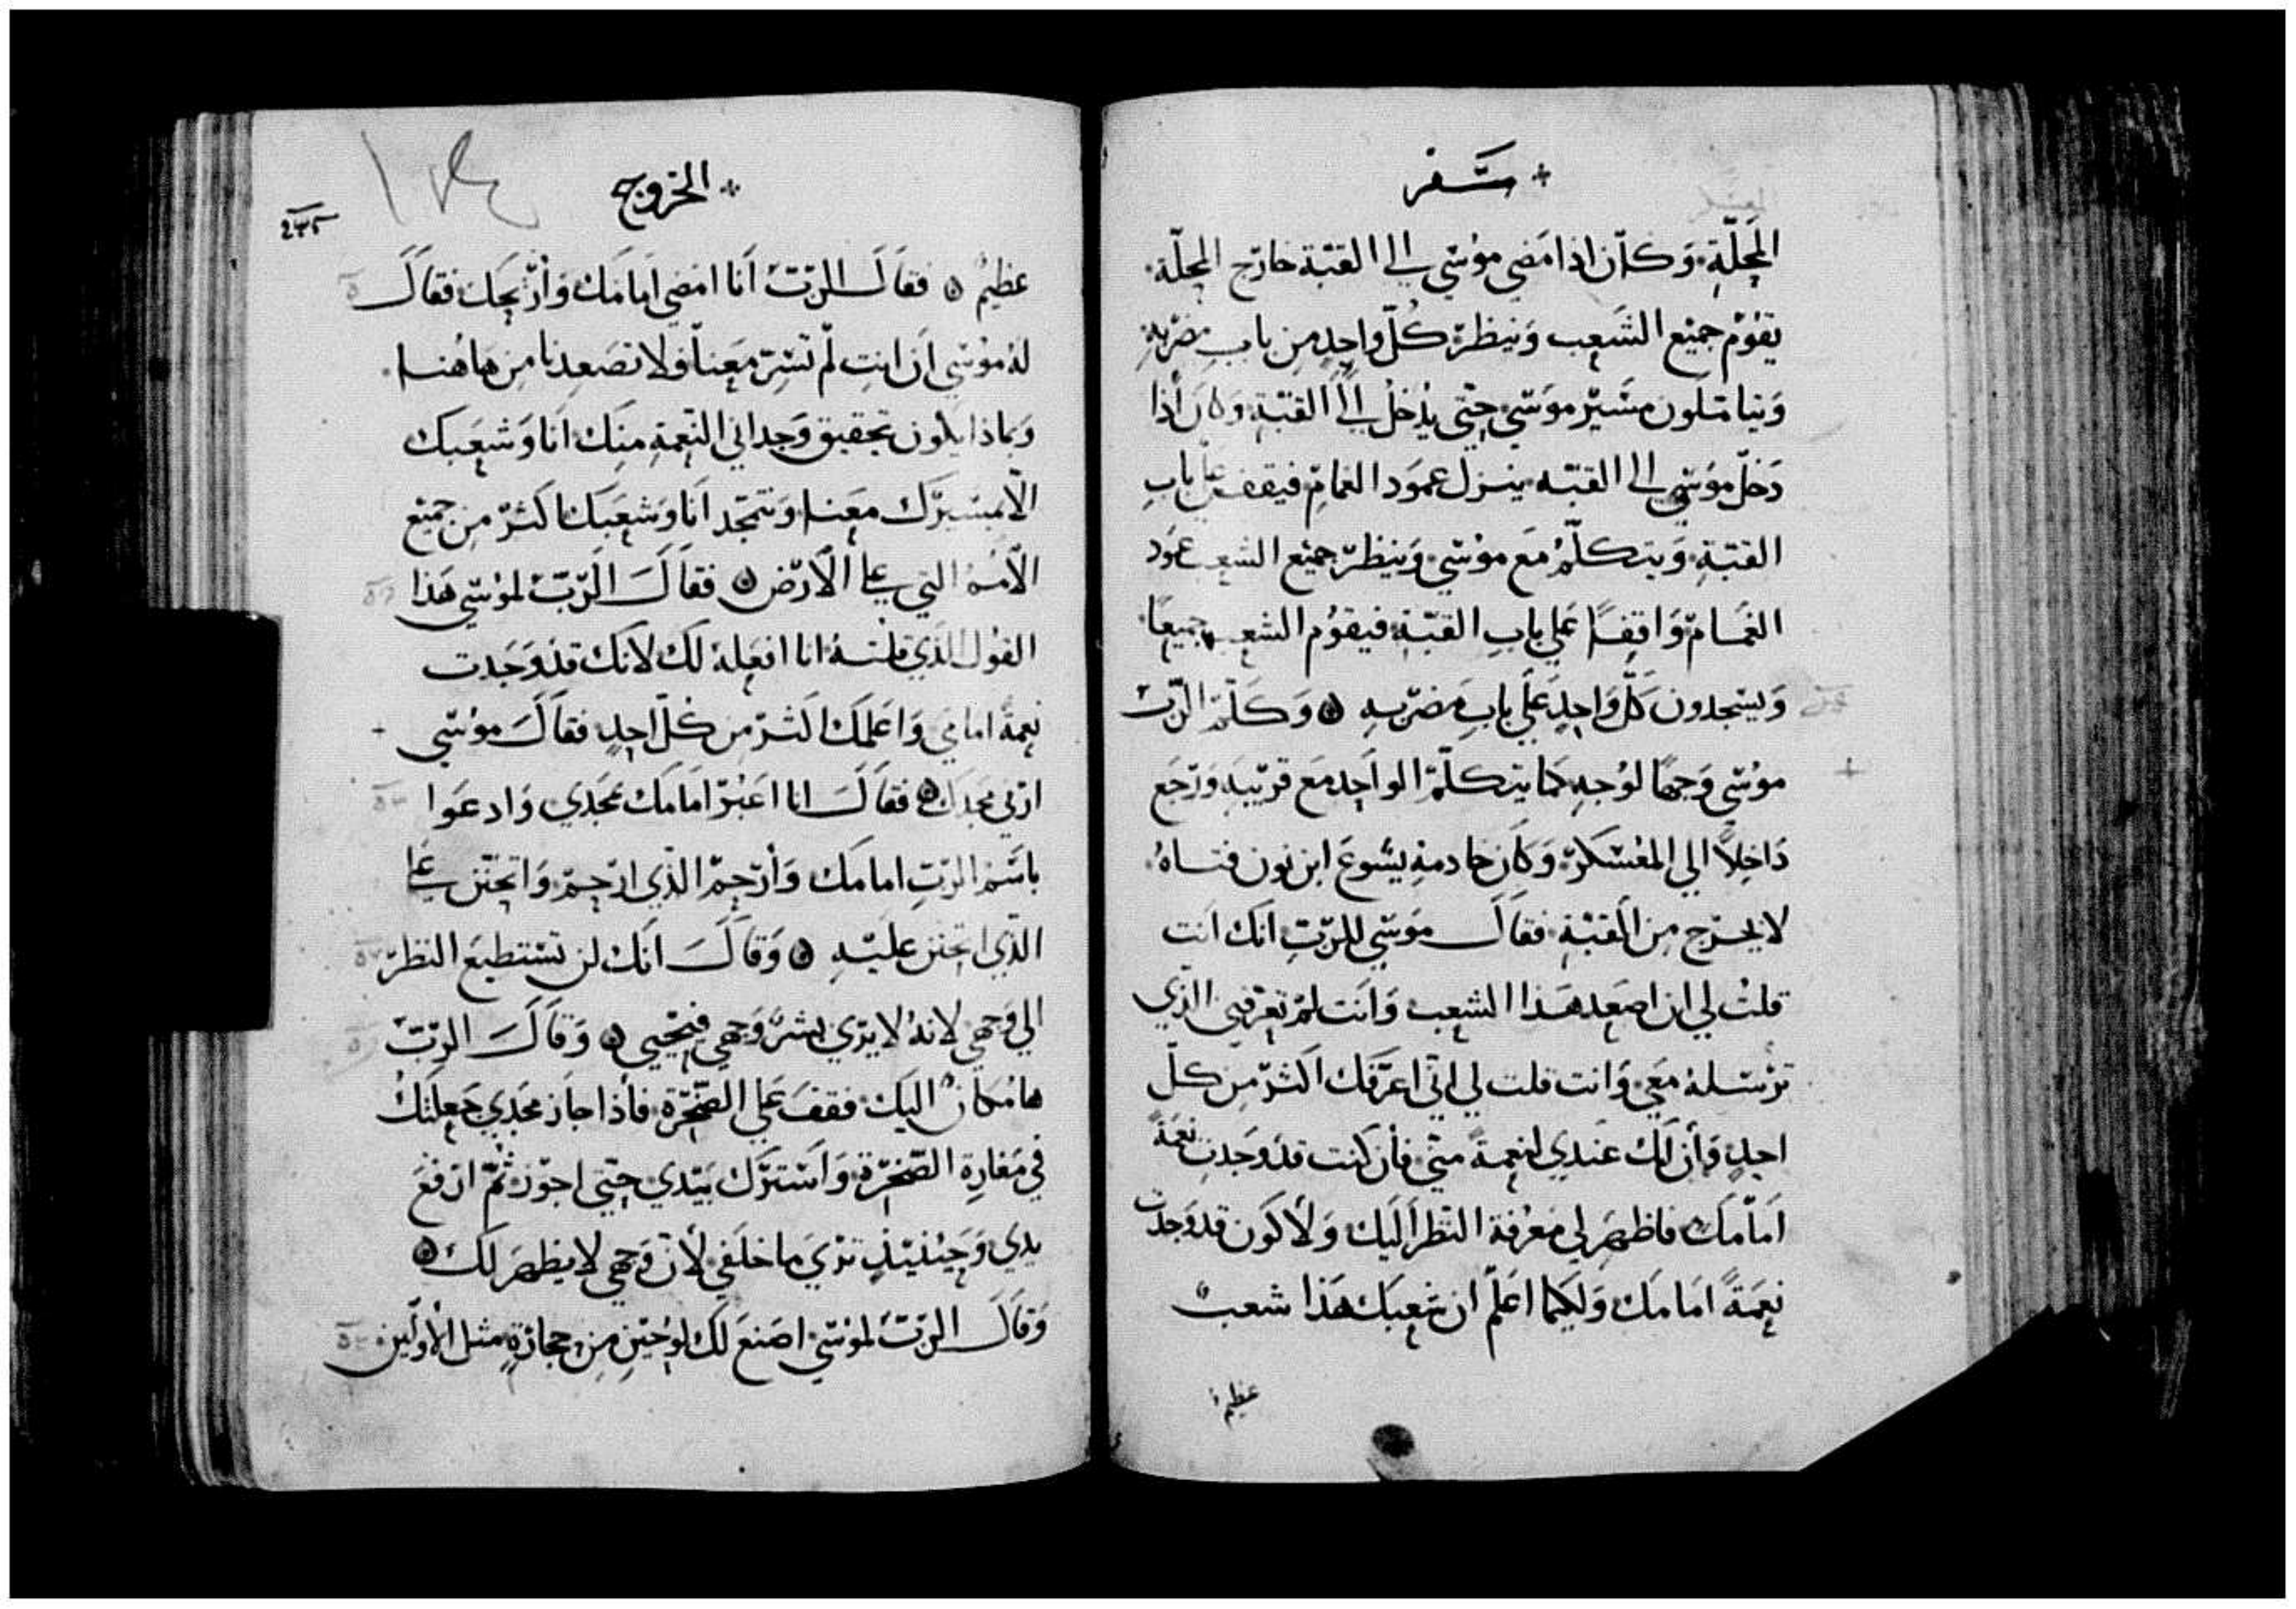 سفر
المحلّة وَكان اذا مَضي موُسي الي القبّة خارج المحلّة
يقوُم جميْع الشَعب وَينظر كُلّ واحِدٍ مِن باب مضربهِ
وَيتاملون مسَير موسَي حتي يُدخل الي القبّةِ وَكان أذا
دَخل موُسي الي القبّه ينزل عموَد الغمامِ فيقف علي باب
القبّةِ وَيتكلّمُ مَع موُسي وَينظر جميْع الشعب عموَد
الغمَام وَاقفاً علي بابِ القبّةِ فيقوُم الشعب جميعاً
وَيسجدون كلّ وَاحِدٍ عَلي بابِ مَضربهِ وَكَلّم الربّ
موُسي وَجهاً لوُجهِ كما يتكلّم الواَحِد مَع قريبَهِ وَرجَع
دَاخِلاً الي المعُسَكر وَكان خادمهِ يسُوعَ ابن نون فتاهُ
لا يخرج مِن القبّةِ فقالَ موَسي للربّ انك اَنت
قلتُ لي ان اصعَد هَذا الشعب وَاَنت لمْ تعرفني الذي
ترْسَلهُ مَعي وَانت قلت لي اني اعرفك اكثر مِن كلّ
احدٍ وَأن لك عَندي لنعِمة مني فأن كنت قد وَجَدت نعَمةً
اَمامَك فاظهَر لي مَعرُفة النظر اَليك وَلأكون قد وَجدت
نعِمَةً اَمامَك وَلكيما اعَلم ان شعبَك هَذا شعبٌ
عظيم
الخروج
٢٣٥
عظيمُ فقاَلَ الربّ اَنا امضي اَمامَك وَأريحَك فقالَ
لهُ موُسي اَن انتِ لم تسِر مَعنا فلا تصَعِدنا مِن هَاهُنا
وَبماذا يكون تحقيق وَجداني النّعمةِ مِنك اَنا وَشعَبك
الّا بمسَيرك معَنا وَنتمجَد اَنا وَشعَبك اكثر مِن جميْع
الأمم التي علي الاَرض فقاَلَ الَربّ لموُسي هَذا
القوُل الذي قلتهُ انا افعَلهُ لك لانك قدْ وَجَدت
نِعِمةً امامي وَاعَلمك اكثر مِن كلّ احِدٍ فقاَلَ موُسي
ارني مجدك فقاَلَ انا اعَبرُ امَامَك بمجَدي وَادعوَا
باسَم الربّ امامَك وَأرحِم الذي ارحم وَاتحنن علي
الذي اتحنن عليَهِ وَقاَلَ اَنك لن تسْتطيعَ النظر
الي وَجهي لانهُ لا يرَي بشر وَجهي فيْحيي وَقاَلَ الربّ
هَا مُكانٌ اليَك فقفَ عَلي الصَخرة فأذا جاَز مجَدي جَعلتك
في مَغارة الصَخرة وَاسَترَك بيَدي حتي اجوز ثمّ ارفعَ
يدي وَحَيْنئيذٍ ترَي ما خلفي لأن وَجهي لا يظهرَ لك
وَقاَلَ الربّ لموُسي اصَنع لك لوُحَيْنِ مِن حجارةٍ مثل الأولين